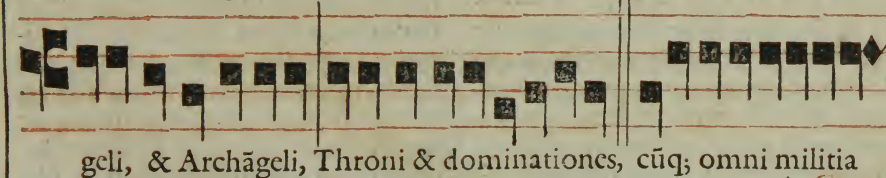 geli, & Archãgeli, Throni & dominationes, cũq; omni militia